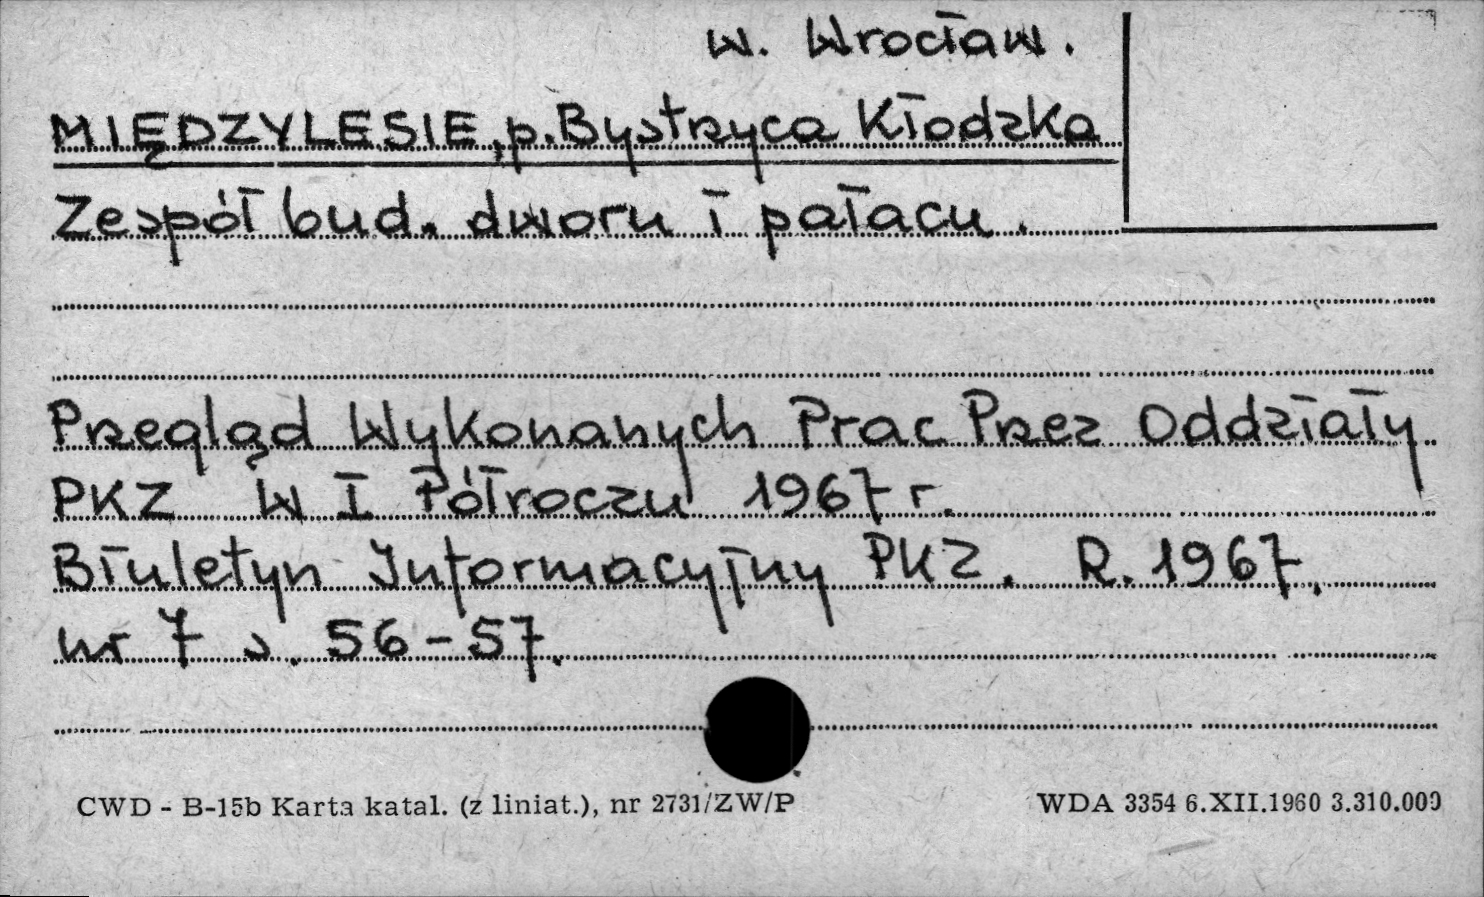 w. Wrocław.
MIĘDZYLESIE, p. Bystrzyca Kłodzka
Zespół bud. dworu i pałacu.
Przegląd Wykonanych Prac Przez Oddziały
PKZ W I Półroczu 1967 r.
Biuletyn Informacyjny PKZ. R. 1967.
nr 7 s. 56-57.
CWD - B-15b Karta katal. (z liniat.), nr 2731/ZW/P
WDA 3354 6.XII.1960 3.310.000